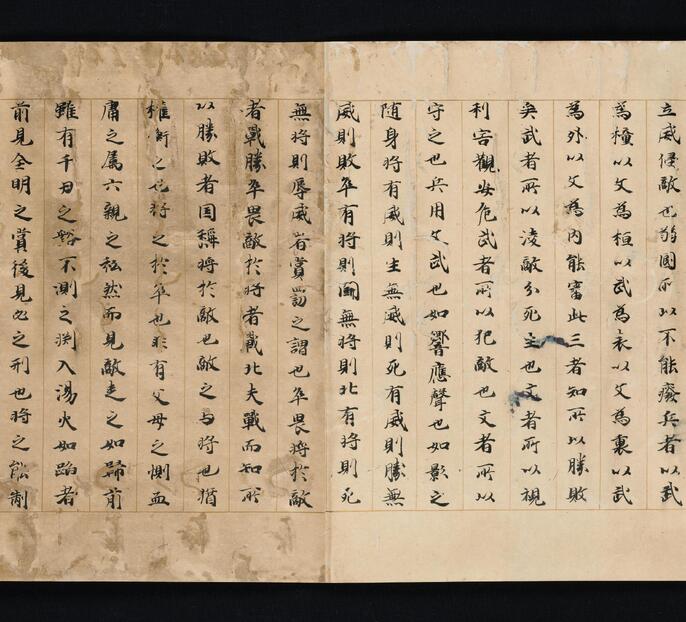 立威侵敵也弱國所以不能癈兵者以武
為植以文為植以武為表以文為裏以武
為外以文為内能審此三者知所以勝敗
矣武者所以淩敵分死生也文者所以視
利害觀安危武者所以犯敵也文者所以
守之也兵用文武也如響應聲也如影之
随身将有威則生無威則死有威則勝無
威則敗卒有将則鬭無将則北有将則死
無将則辱威者賞罰之謂也卒畏将於敵
者戰勝卒畏敵於将者戰北夫戰而知所
以勝敗者固稱将於敵也敵之与将也猶
權衡之也将之於卒也非有父母之惻血
膚之属六親之私然而見敵走之如歸前
雖有千刃之谿不測之渕入湯火如蹈者
前見全明之賞後見必之刑也将之能制